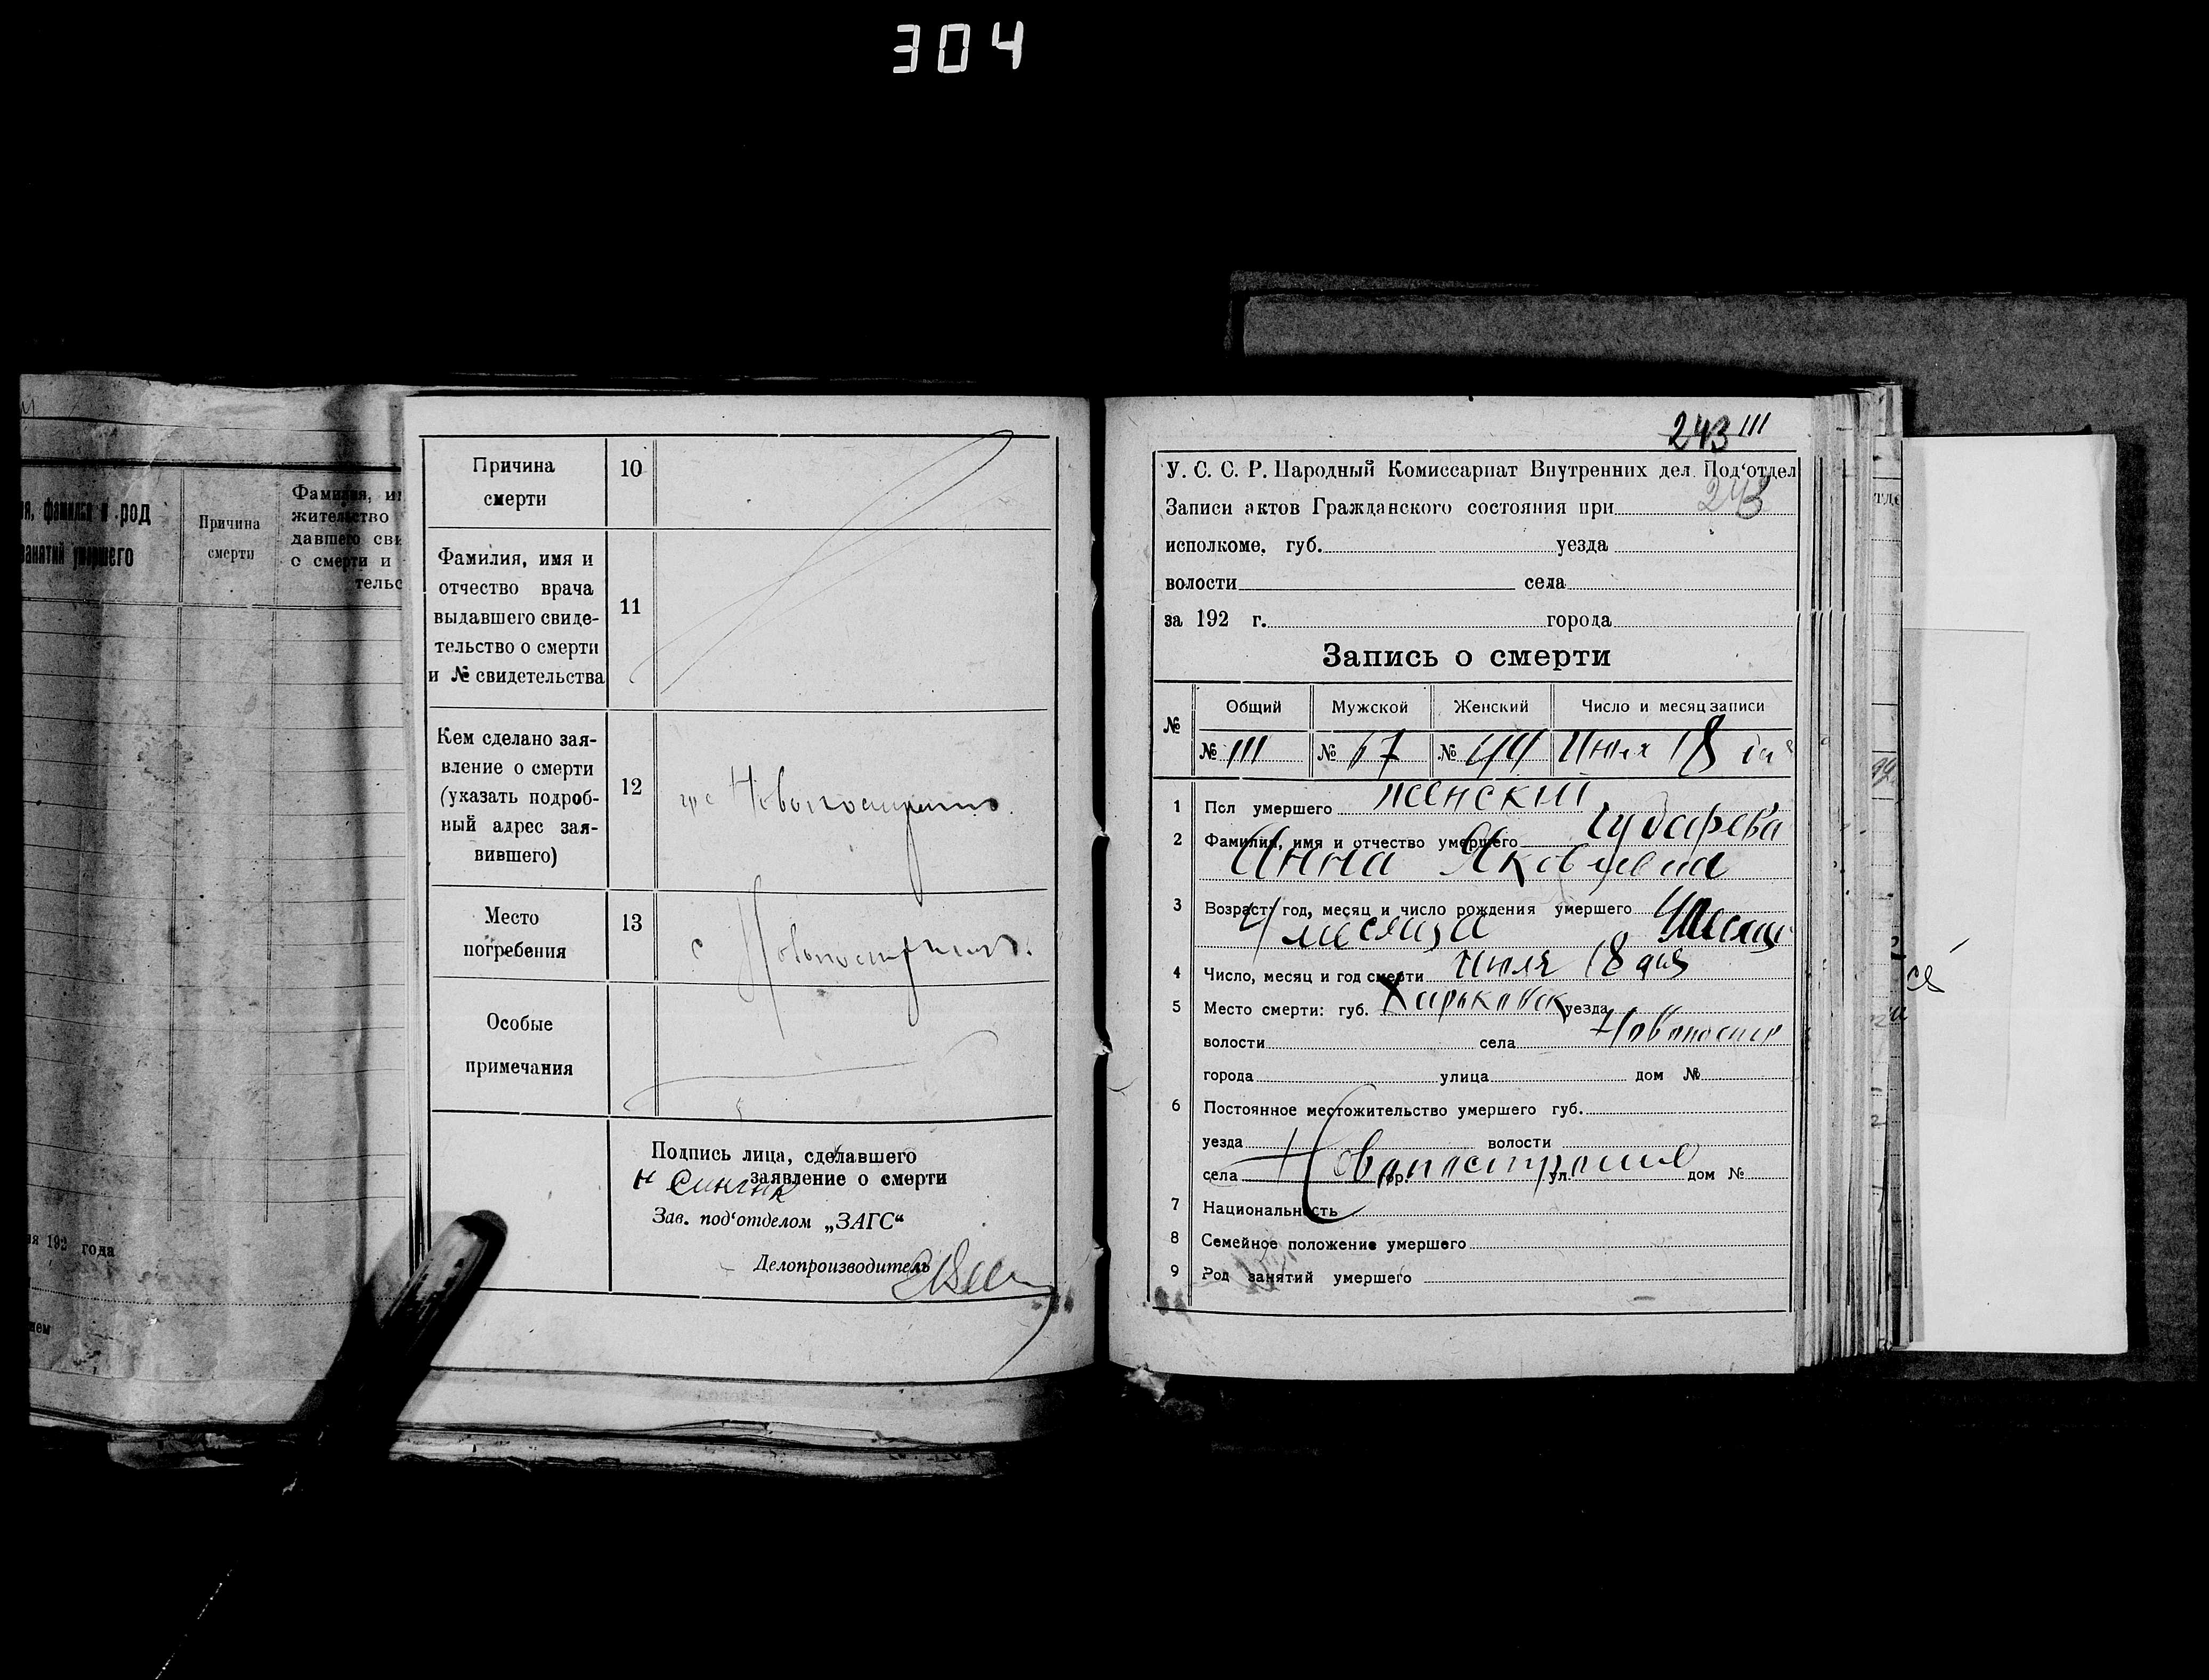 304
род
Причина
смерти
жительство
о смерти и
192 года
Причина
смерти
10
Фамилия, имя и
отчество врача
выдавшего свиде-
тельство о смерти
и № свидетельства
11
Кем сделано зая-
вление о смерти
(указать подроб-
ный адрес зая-
вившего)
12
Место
погребения
13
с
Особые
примечания
Подпись лица, сделавшего
заявление о смерти
Зав. под'отделом „ЗАГС“
Делопроизводитель
243 111
У. С. С. Р. Народный Комиссариат Внутренних дел Под'отдел
Записи актов Гражданского состояния при 243
исполкоме, губ. уезда
волости села
за 192 г. города
Запись о смерти
№ Общий Мужской Женский Число и месяц записи
№ 111 № 67 № 44 Июля 18
1 Пол умершего женский
2 Фамилия, имя и отчество умершего
Анна Яковлевна
3 Возраст: год, месяц и число рождения умершего 4
4 месяца
4 Число, месяц и год смерти Июля 18 дня
5 Место смерти: губ. Харьковск уезда
волости села Новопостр
города улица дом №
6 Постоянное местожительство умершего губ.
уезда волости
села гор. ул. дом №
7 Национальность
8 Семейное положение умершего
9 Род занятий умершего